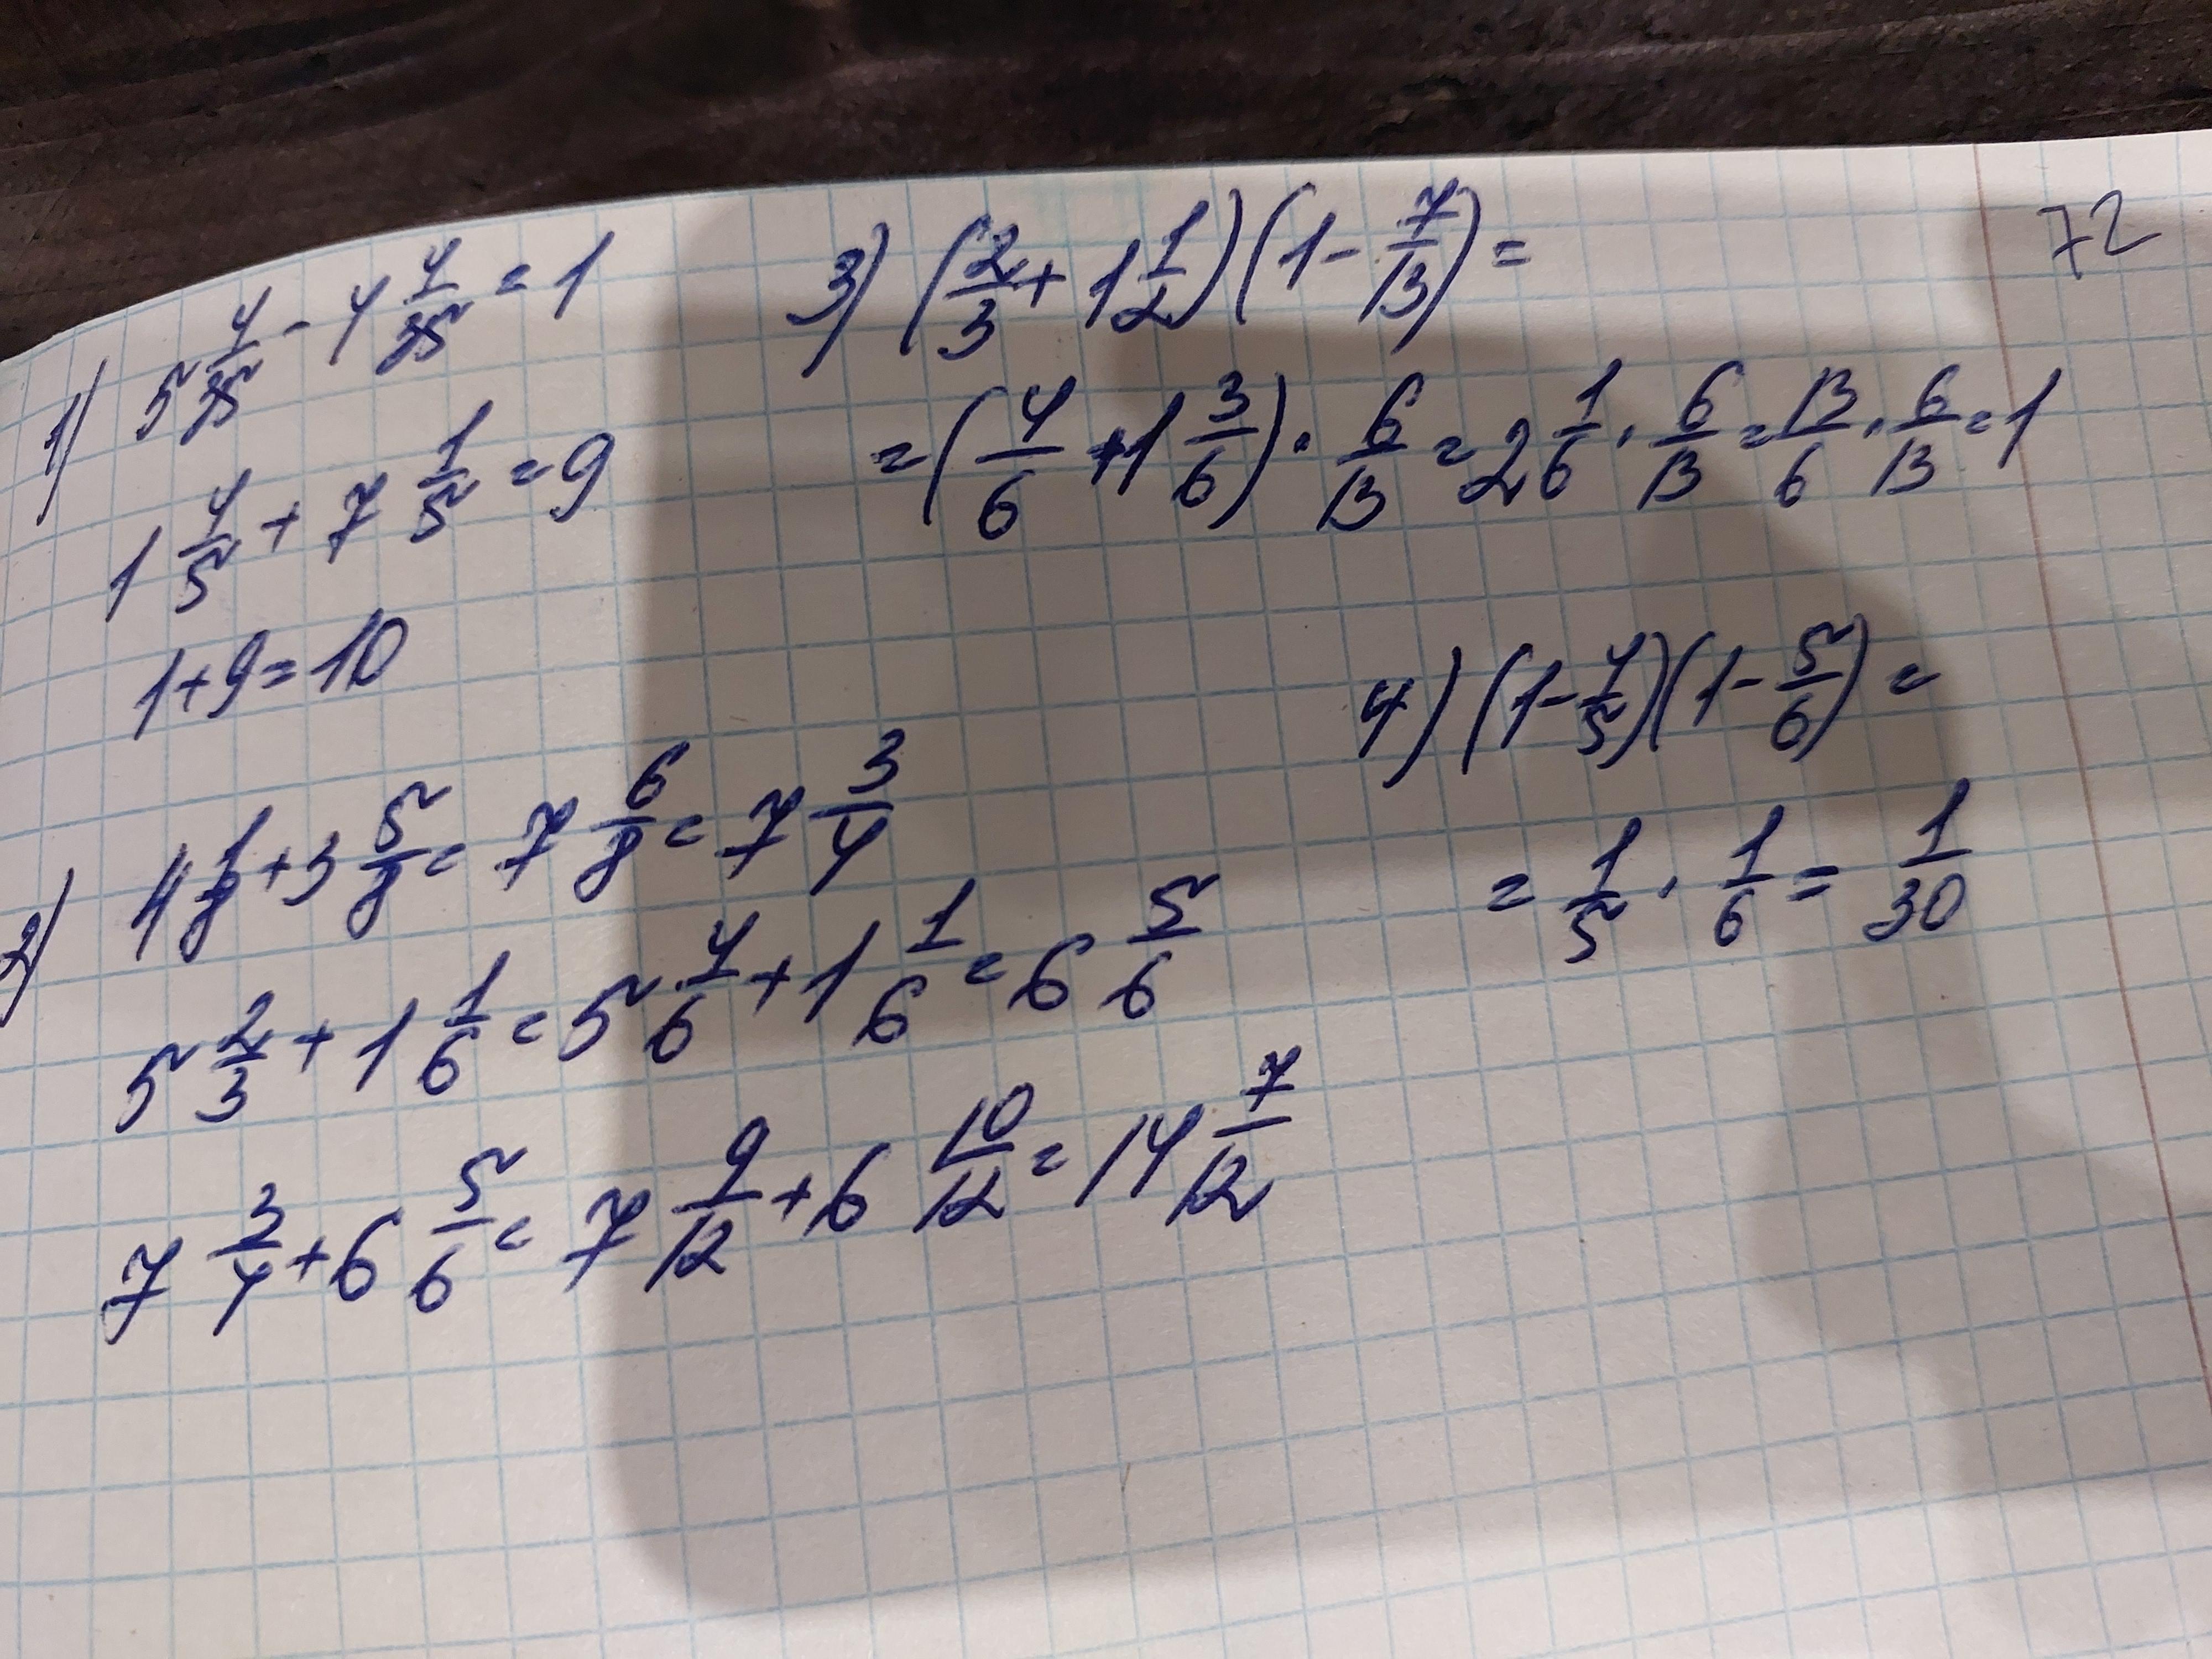 72
1) 5 4/35 - 4 4/35 = 1
1 4/5 + 7 1/5 = 9
1+9=10
2) 4 1/8 + 3 5/8 = 7 6/8 = 7 3/4
5 2/3 + 1 1/6 = 5 4/6 + 1 1/6 = 6 5/6
7 3/4 + 6 5/6 = 7 9/12 + 6 10/12 = 14 7/12
3) (2/3 + 1 1/2)(1 - 7/13) =
= (4/6 + 1 3/6) · 6/13 = 2 1/6 · 6/13 = 13/6 · 6/13 = 1
4) (1 - 4/5)(1 - 5/6) =
= 1/5 · 1/6 = 1/30